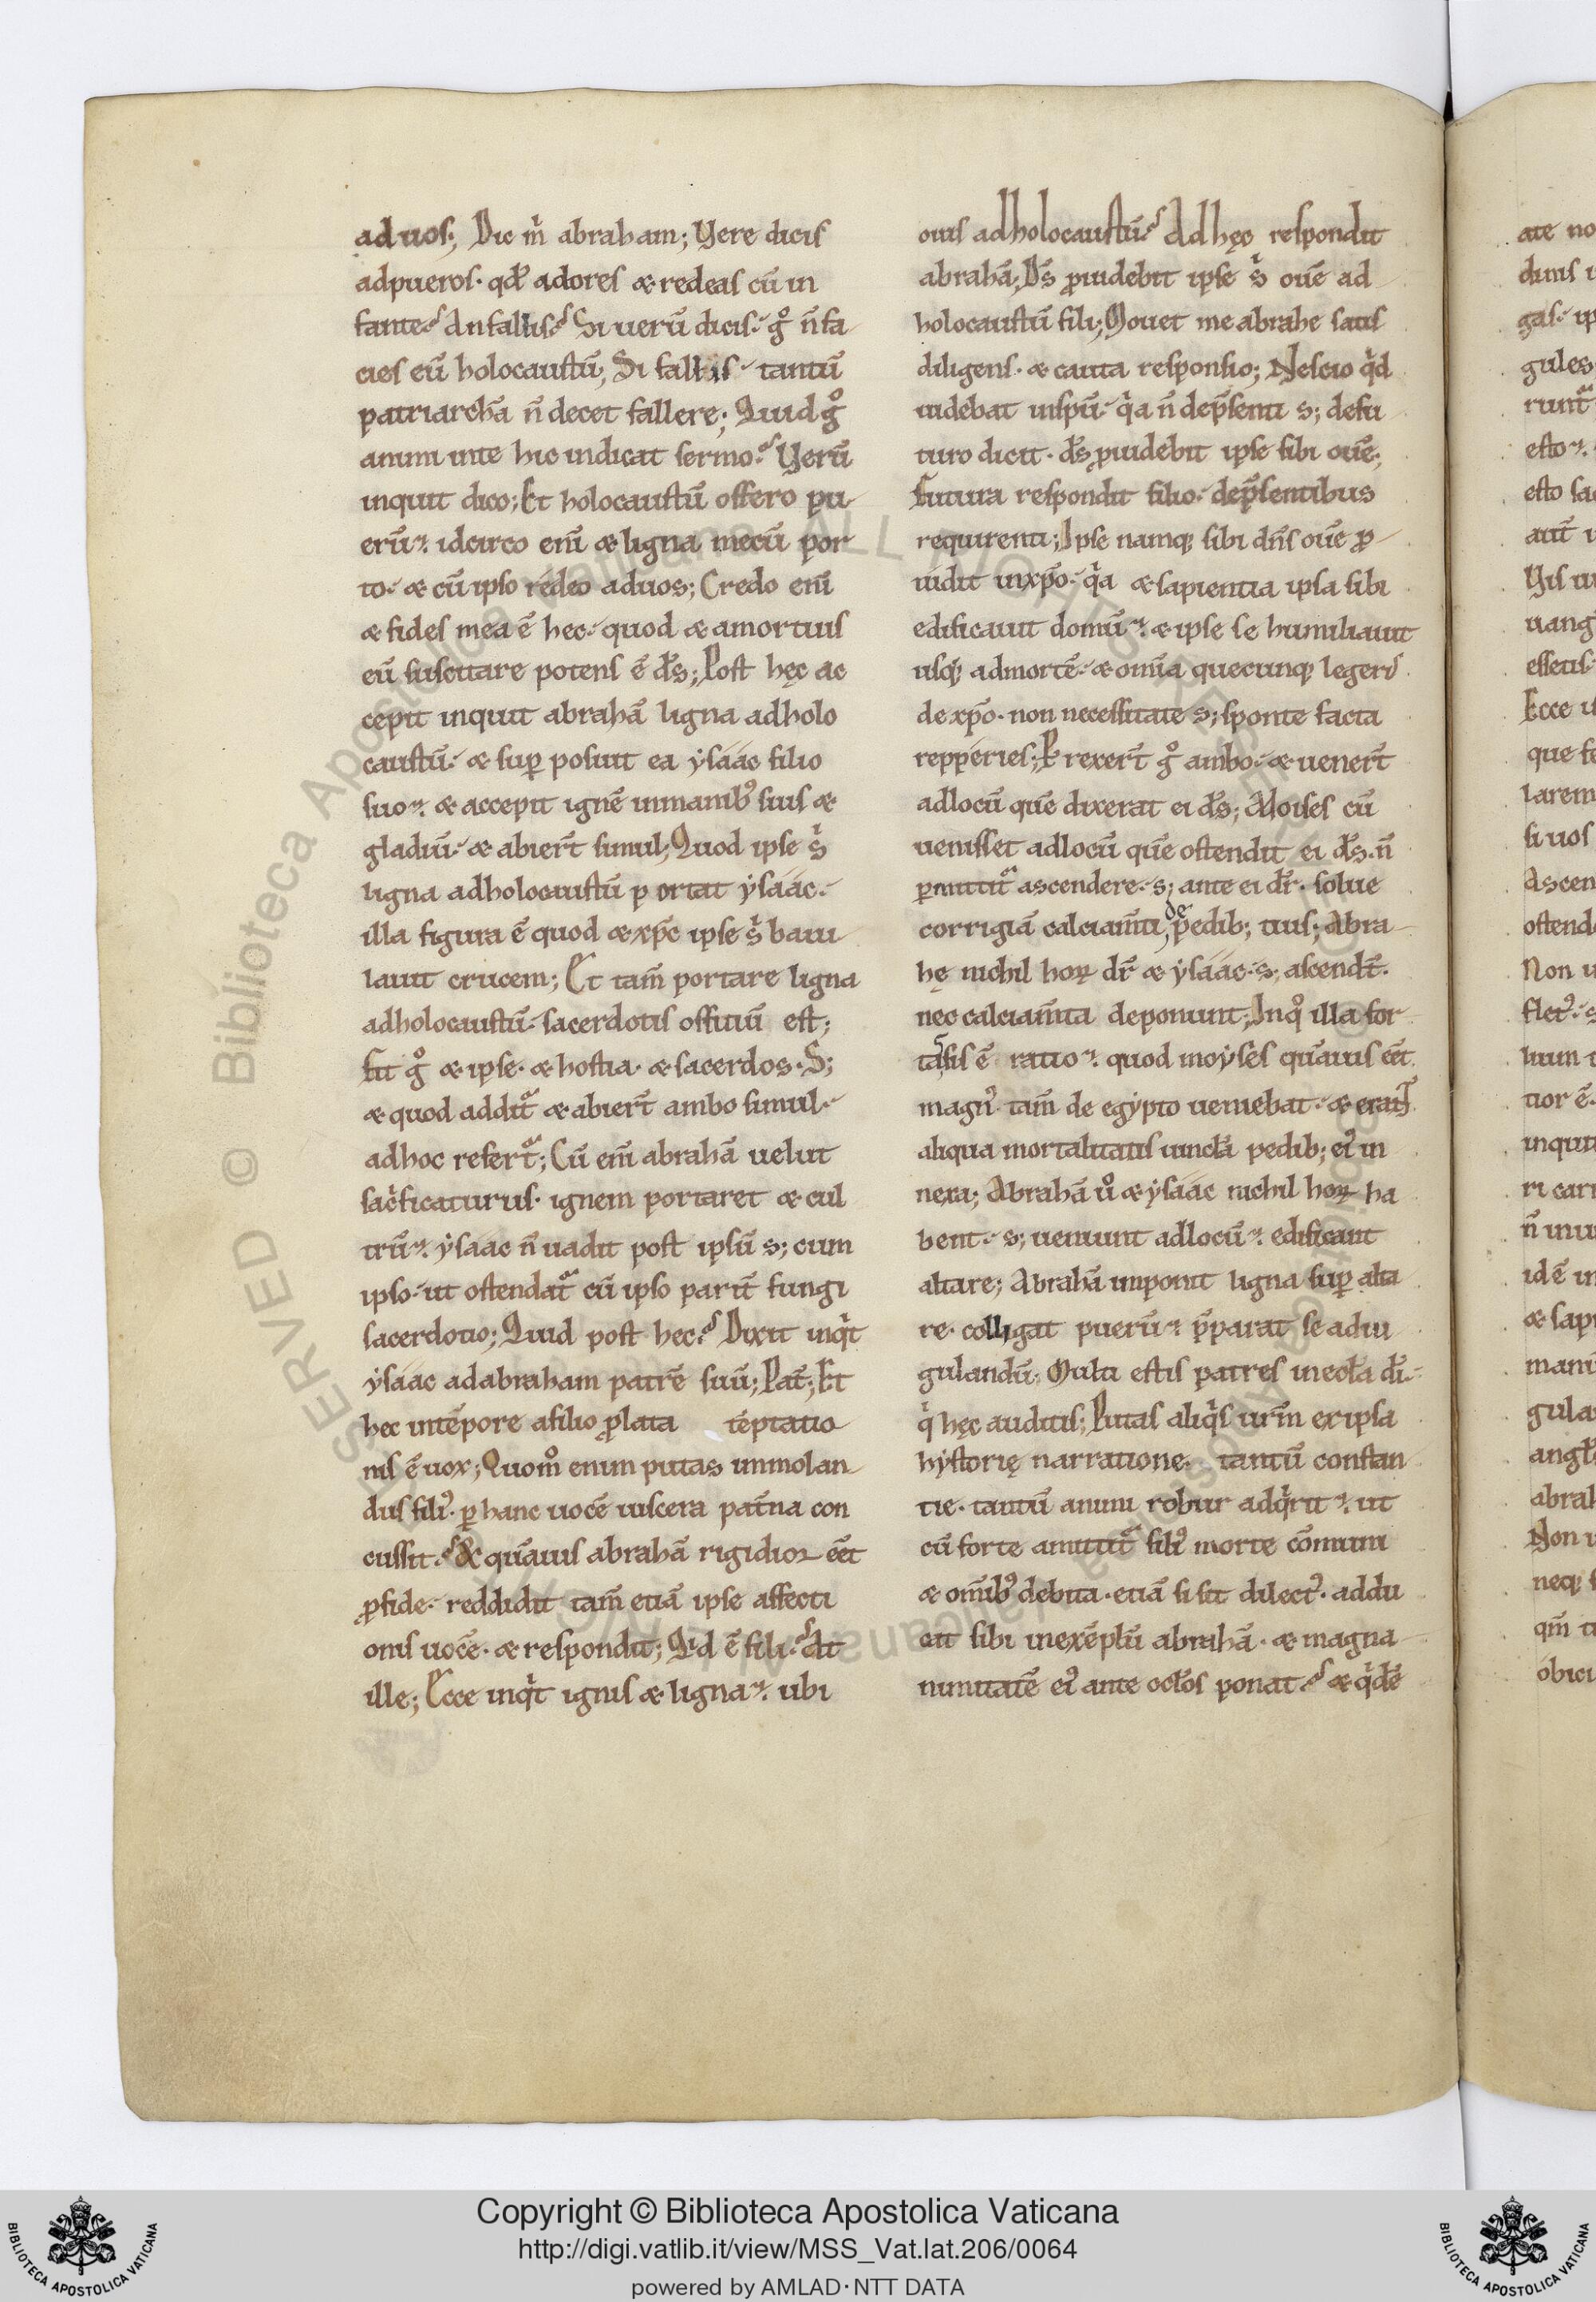 ad uos; Dic m̉ abraham; Vere dicis
ad pueros· qđ adores & redeas cū in
fante? An fallis? Si uerū dicis· g̊ n̄ fa
cies eū holocaustū; Si fallis· tantū
patriarchā n̄ decet fallere; Quid g̊
animi in te hic indicat sermo? Verū
inquit dico; Et holocaustū offero pu
erū· idcirco eni̅ & ligna mecū por
to· & cū ipso redeo ad uos; Credo eni̅
& fides mea ē hec· quod & a mortuis
eū suscitare potens ē ds̄; Post hęc ac
cepit inquit abrahā ligna ad holo
caustū· & suꝑ posuit ea ẏsáác filio
suo· & accepit ignē in manibꝰ suis &
gladiū· & abier̄t simul; Quod ipse s̉
ligna ad holocaustū portat ẏsáác·
illa figura ē quod & xp̄c ipse s̉ baiu
lauit crucem; Et tam̄ portare ligna
ad holocaustū· sacerdotis offitiū est;
Fit g̊ & ipse· & hostia· & sacerdos· S;
& quod addit᷑ & abier̄t ambo simul·
ad hoc refert᷑; Cū eni̅ abrahā uelut
sac̉ficaturus· ignem portaret & cul
trū· ẏsaac n̄ uadit post ipsū s; cum
ipso· ut ostendat᷑ cū ipso parit̄ fungi
sacerdotio; Quid post hec? Dixit inq̉t
ẏsáác ad abraham patrē suū; Pat̄; Et
hec in tēpore a filio ꝓlata tēptatio
nis ē uox; Quom̊ enim putas immolan
dus filiꝰ· ꝑ hanc uocē uiscera pat̄na con
cussit? & quāuis abrahā rigidior eēt
ꝓ fide· reddidit tam̄ etiā ipse affecti
onis uocē· & respondit; Qid ē fili? At
ille; Ecce inq̉t ignis & ligna· ubi
ouis ad holocaustū? Ad hęc respondit
abrahā; Ds̄ ꝓuidebit ipse s̉ ouē ad
holocaustū fili; Mouet me abrahe satis
diligens· & cauta responsio; Nescio q̉d
uidebat in spū· q̉a n̄ de p̄senti s; de fu
turo dicit· ds̄ ꝓuidebit ipse sibi ouē;
Futura respondit filio· de p̄sentibus
requirenti; Ipse namq; sibi dn̄s ouē ꝓ
uidit in xp̄o· q̉a & sapientia ipsa sibi
edificauit domū· & ipse se humiliauit
usq; ad mortē· & omīa quecunq; legeris
de xp̄o· non necessitate s; sponte facta
repperies; Prexer̄t g̊ ambo· & uener̄t
ad locū quē dixerat ei ds̄; Moises cū
uenisset ad locū quē ostendit ei ds̄· n̄
ꝑmittit᷑ ascendere· s; ante ei dr̄· solue
corrigiā calciam̄ti de pedib; tuis; Abra
hę nichil hoꝝ dr̄ & ẏsáác· s; ascendt̄·
nec calciam̄ta deponunt; In q̊ illa for
tassis ē ratio· quod moẏses quāuis eēt
magnꝰ· tam̄ de egẏpto ueniebat· & erant
aliqua mortalitatis uinc̄la pedib; eiꝰ in
nexa; Abrahā ů & ẏsáác nichil hoꝝ ha
bent· s; ueniunt ad locū· edificant
altare; Abrahā imponit ligna suꝑ alta
re· colligat puerū· p̄parat se ad iu
gulandū; Multi estis patres in eccl̄a di̅·
q̉ hęc auditis; Putas aliq̉s ur̄m ex ipsa
hẏstorię narratione· tantū constan
tie· tantū animi robur adq̉rit· ut
cū forte amittit᷑ filiꝰ morte cōmuni
& om̄ibꝰ debita· etiā si sit dilectꝰ· addu
cat sibi in exēplū abrahā· & magna
nimitatē eiꝰ ante oclo̅s ponat? & q̉dē
Copyright © Biblioteca Apostolica Vaticana
http://digi.vatlib.it/view/MSS_Vat.lat.206/0064
powered by AMLAD·NTT DATA
BIBLIOTECA APOSTOLICA VATICANA
BIBLIOTECA APOSTOLICA VATICANA